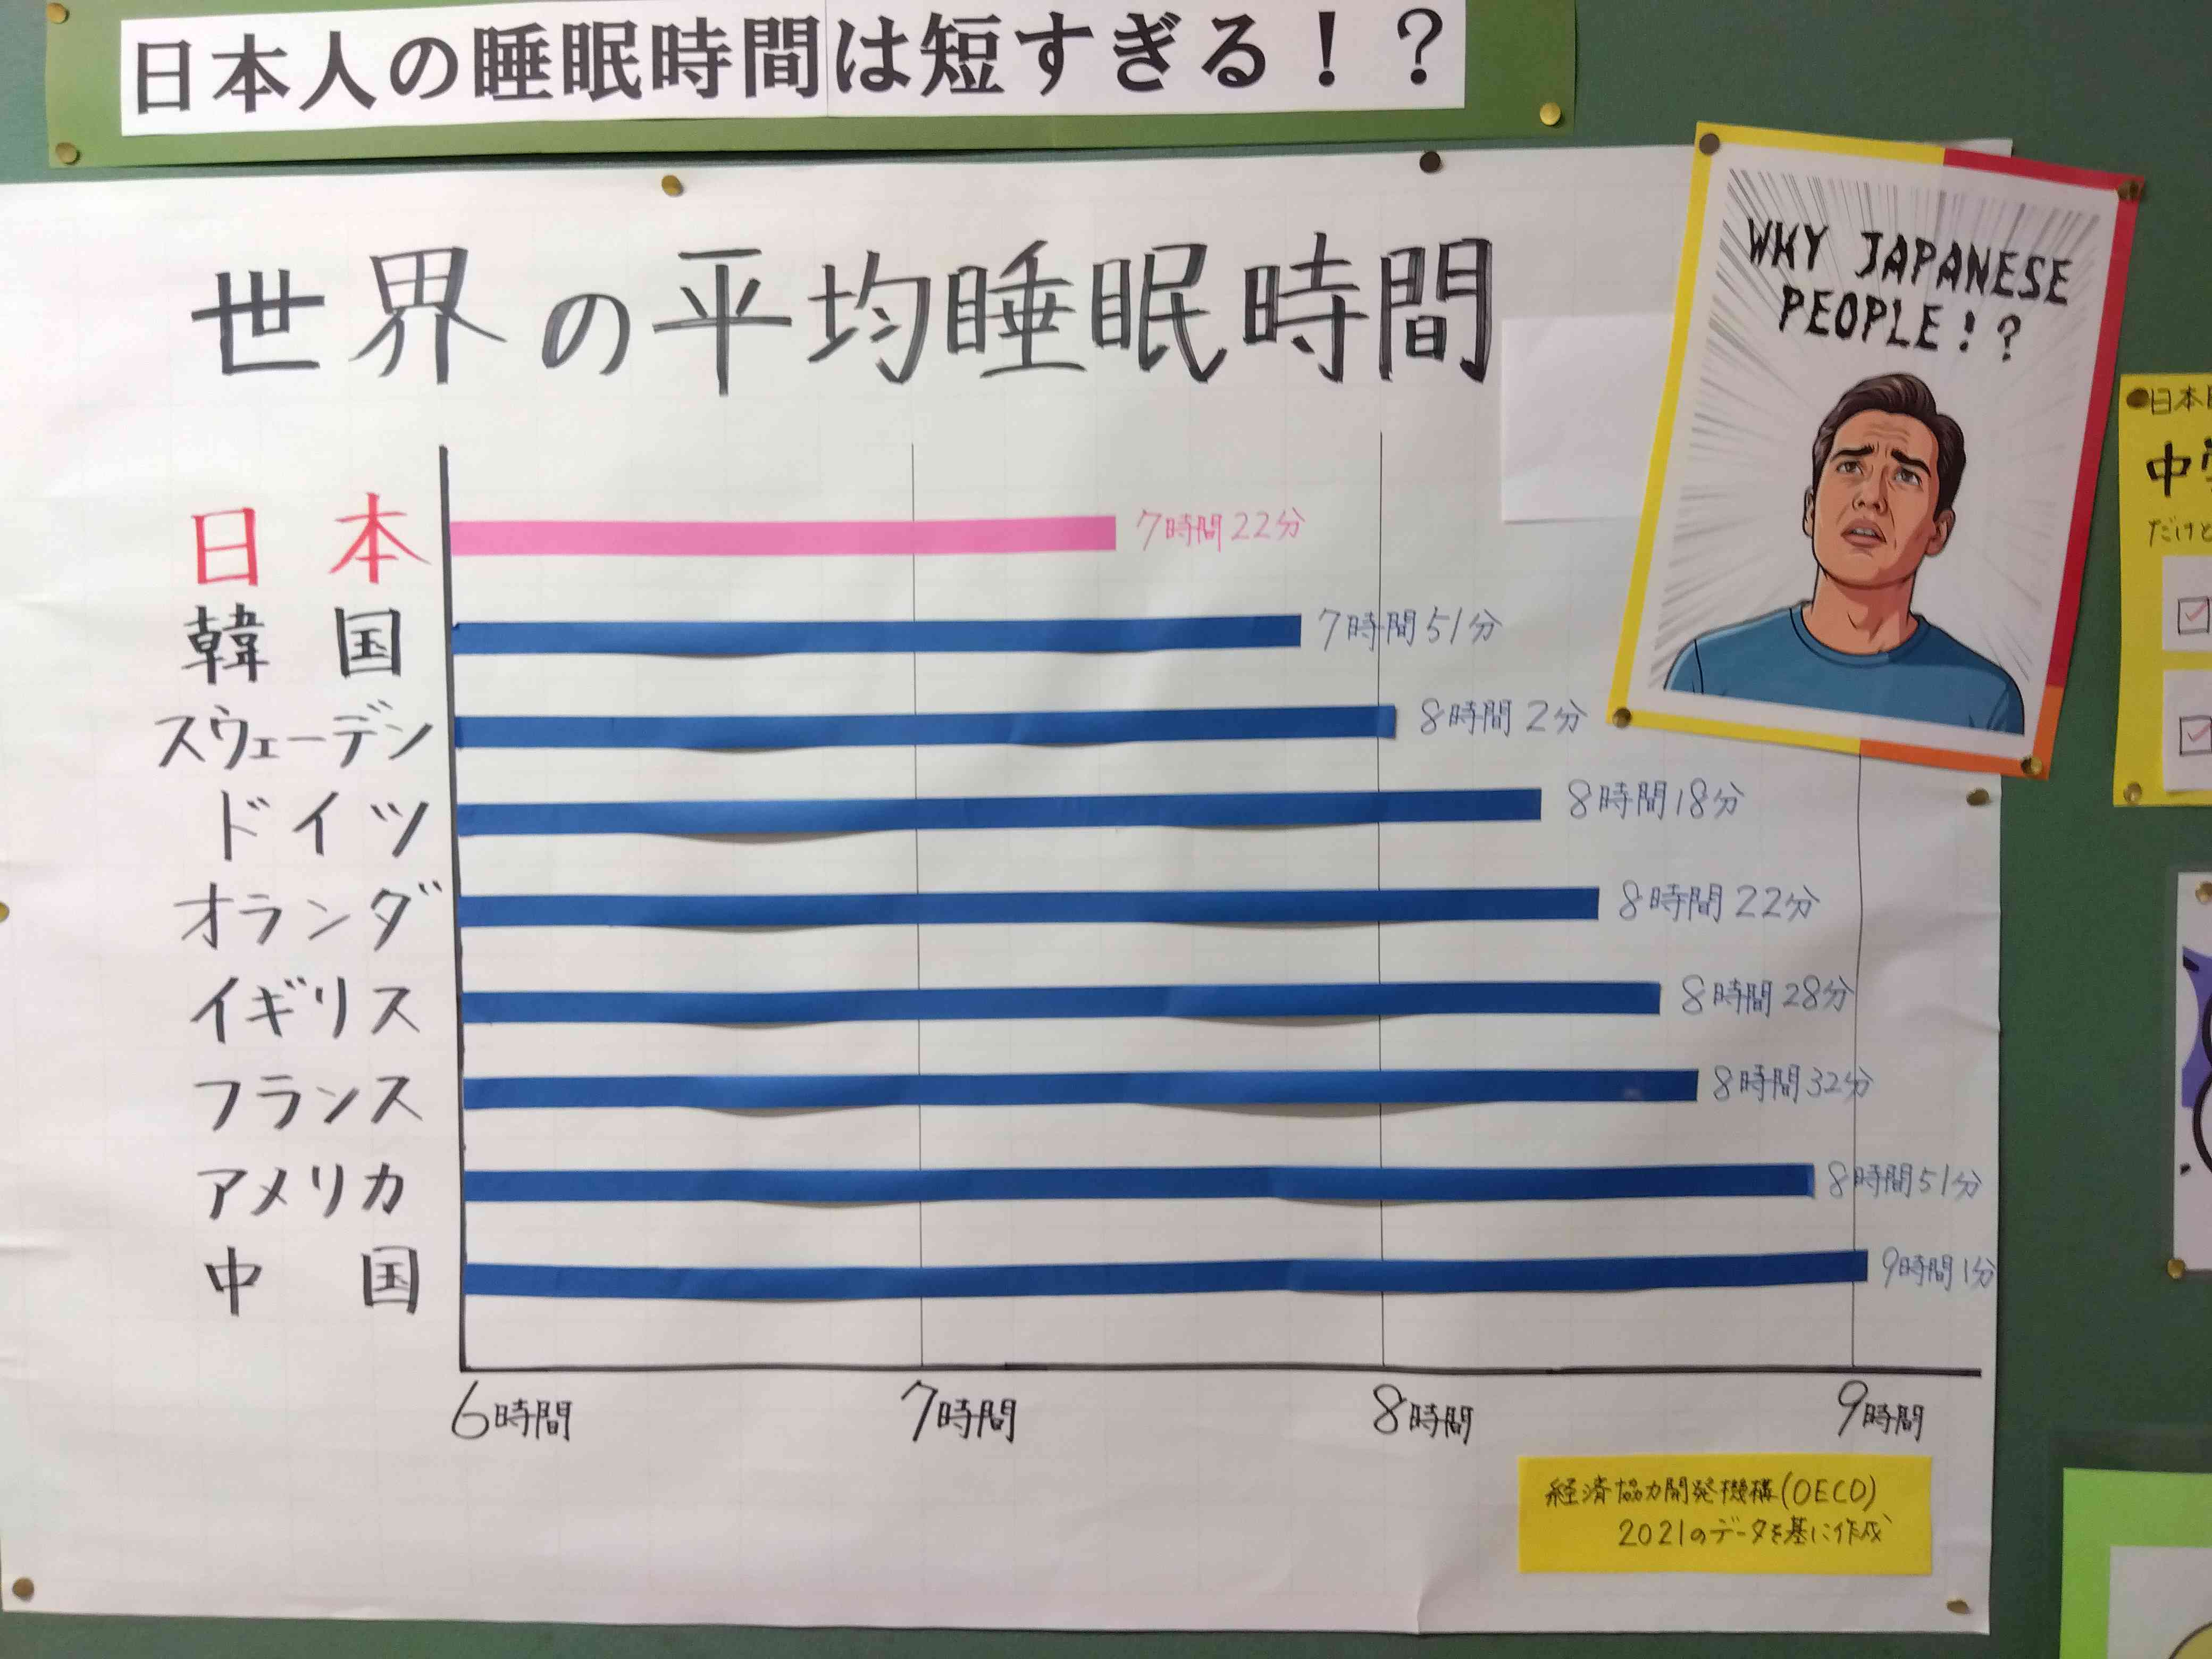 日本人の睡眠時間は短すぎる！？
世界の平均睡眠時間
WHY JAPANESE
PEOPLE!?
日本 7時間22分
韓国 7時間51分
スウェーデン 8時間2分
ドイツ 8時間18分
オランダ 8時間22分
イギリス 8時間28分
フランス 8時間32分
アメリカ 8時間51分
中国 9時間1分
6時間 7時間 8時間 9時間
経済協力開発機構(OECD)
2021のデータを基に作成
日本
中
だけど